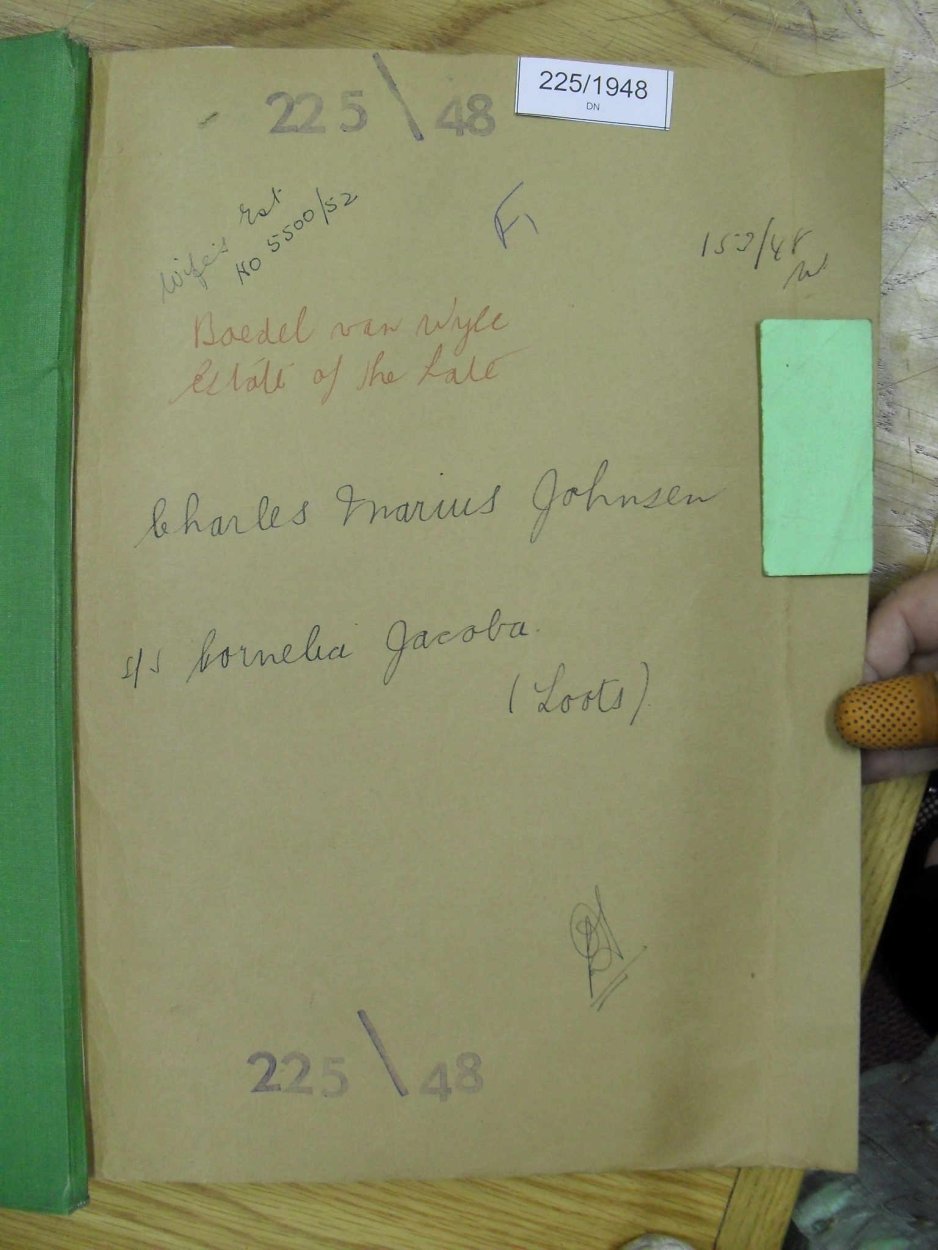 225/1948
DN
225 \ 48
Wife's Est
No 5500/52
F1
153/48
W
Boedel van Wyle
Estate of the Late
Charles Marius Johnsen
s/s Cornelia Jacoba
(Loots)
225 \ 48